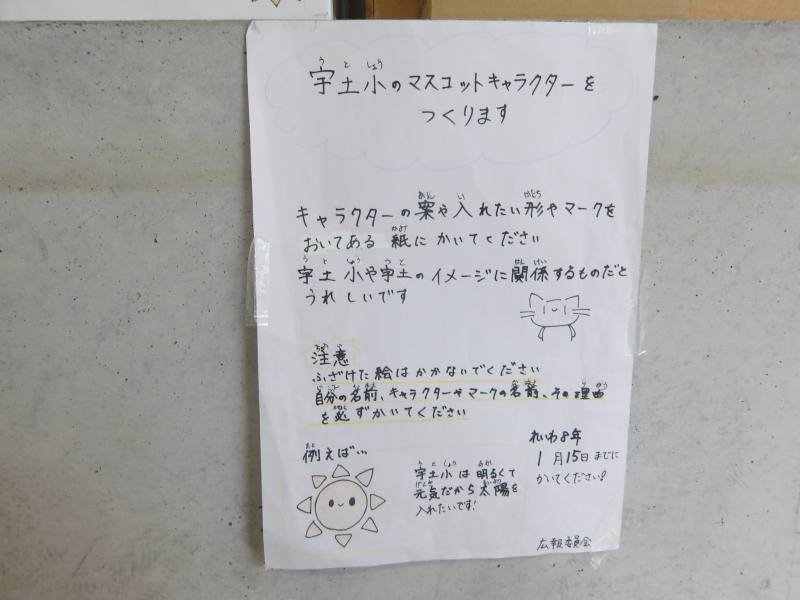 宇土小のマスコットキャラクターを
つくります
キャラクターの案や入れたい形やマークを
おいてある 紙にかいてください
宇土小や宇土のイメージに関係するものだと
うれしいです
注意
ふざけた絵はかかないでください
自分の名前、キャラクターやマークの名前、その理由
を必ずかいてください
例えば…
宇土小は明るくて
元気だから太陽を
入れたいです!
れいわ8年
1月15日までに
かいてください!
広報委員会